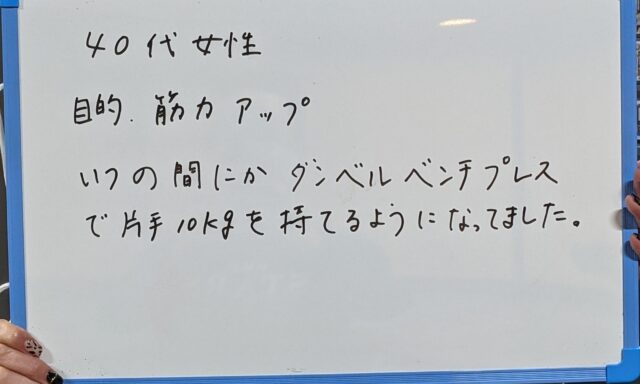 40代女性
目的.筋力アップ
いつの間にかダンベルベンチプレス
で片手10kgを持てるようになってました。